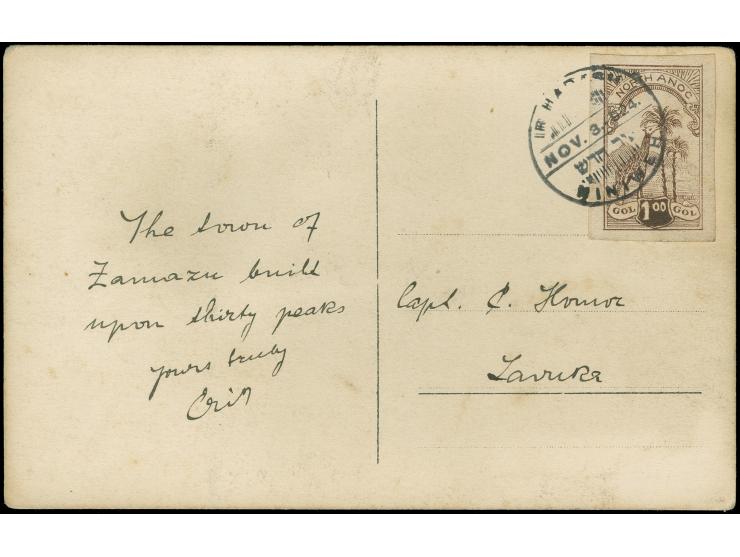 The town of
Zamazu built
upon thirty peaks
yours truly
NORTH ANOC
NOV. 3. 924.
GOL 1 00 GOL
Capt. C. Homor
Lavuka